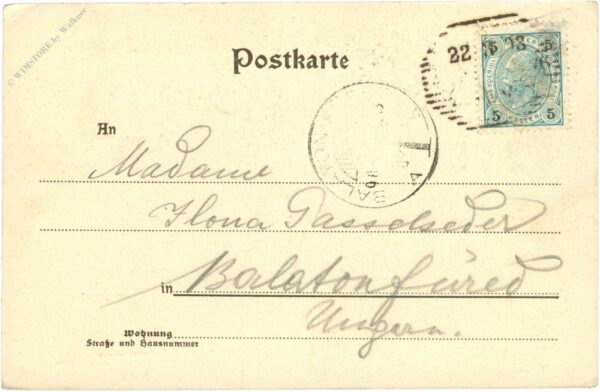 © WIMSTORE by Walkner
Postkarte
22
5 5
5 5
An
Madame
Ilona Passelseder
in Balatonfüred
Ungarn.
Wohnung
Straße und Hausnummer